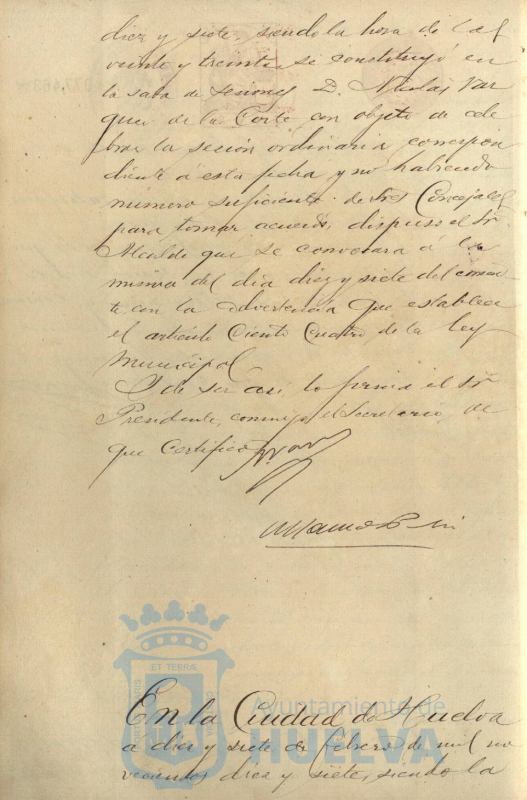 diez y siete, siendo la hora de las
veinte y treinta, se constituyó en
la sala de sesiones D. Nicolás Vaz
quez de la Corte con objeto de cele
brar la sesión ordinaria correspon
diente á esta fecha y no habiendo
número suficiente de Sres Concejales
para tomar acuerdo, dispuso el Sr
Alcalde que se convocara á la
misma del día diez y siete del corrien
te, con la advertencia que establece
el artículo Ciento Cuatro de la ley
Municipal
Y de ser así lo firma el Sr
Presidente, conmigo el Secretario, de
que Certifico
ET TERRÆ
En la Ciudad de Huelva
Ayuntamiento de
HUELVA
a diez y siete de febrero de mil no
vecientos diez y siete, siendo la